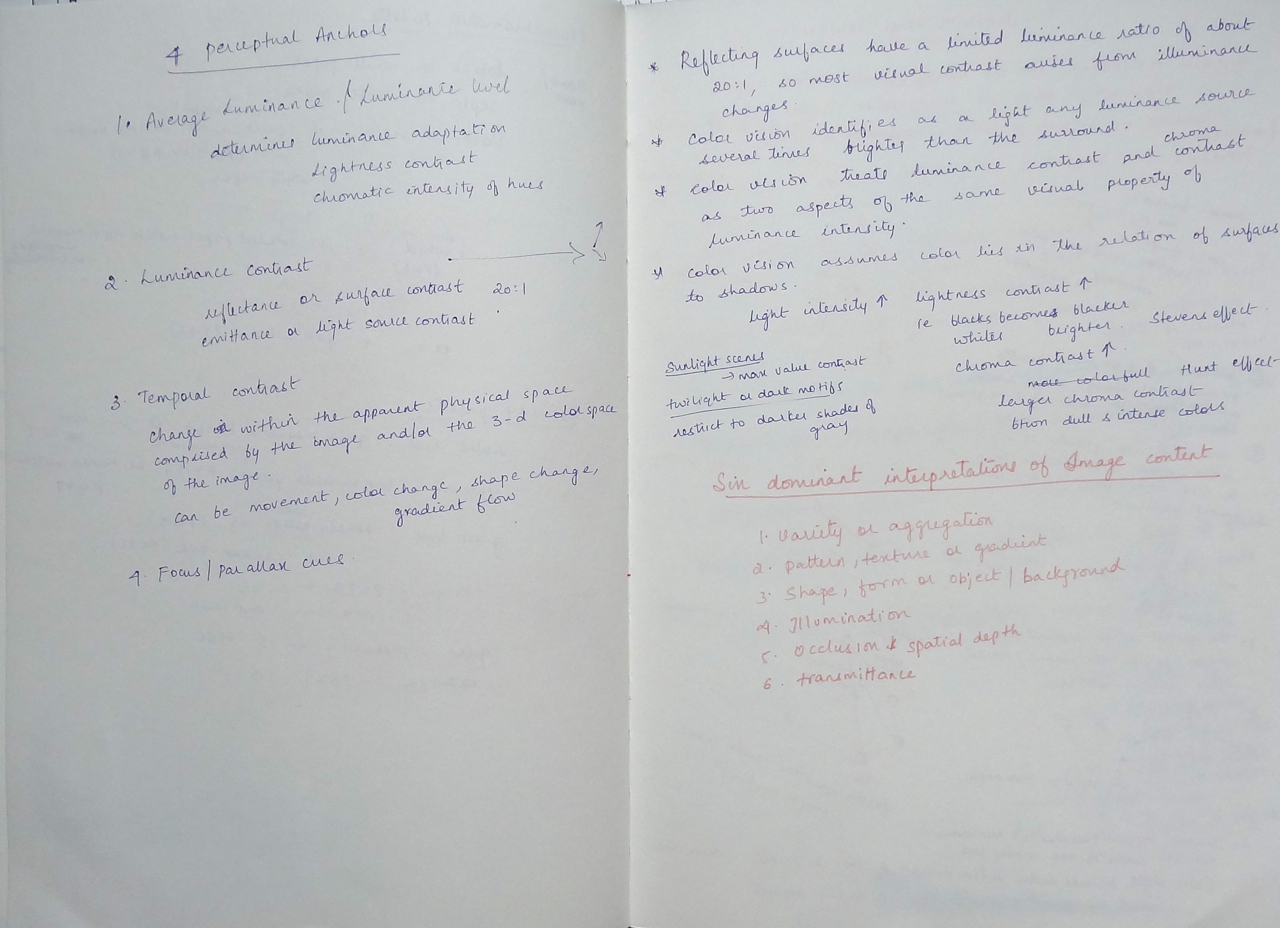 4 perceptual Anchors
1. Average Luminance / Luminance level
determines luminance adaptation
Lightness contrast
chromatic intensity of hues
2. Luminance contrast
reflectance or surface contrast 20:1
emittance or light source contrast
3. Temporal contrast
change within the apparent physical space
comprised by the image and/or the 3-d colorspace
of the image.
can be movement, color change, shape change,
gradient flow
4. Focus / parallax cues.
* Reflecting surfaces have a limited luminance ratio of about
20:1, so most visual contrast arises from illuminance
changes.
* Color vision identifies as a light any luminance source
several times brighter than the surround.
* Color vision treats luminance contrast and chroma contrast
as two aspects of the same visual property of
luminance intensity.
* color vision assumes color lies in the relation of surfaces
to shadows.
light intensity ↑ lightness contrast ↑
ie blacks becomes blacker
whites brighter. Stevens effect.
Sunlight scenes
→ max value contrast
twilight or dark motifs
restrict to darker shades of
gray
chroma contrast ↑
more colorfull Hunt effect-
larger chroma contrast
btwn dull & intense colors
Six dominant interpretations of Image content
1. Variety or aggregation
2. pattern, texture or gradient
3. Shape, form or object / background
4. Illumination
5. Occlusion & spatial depth
6. transmittance